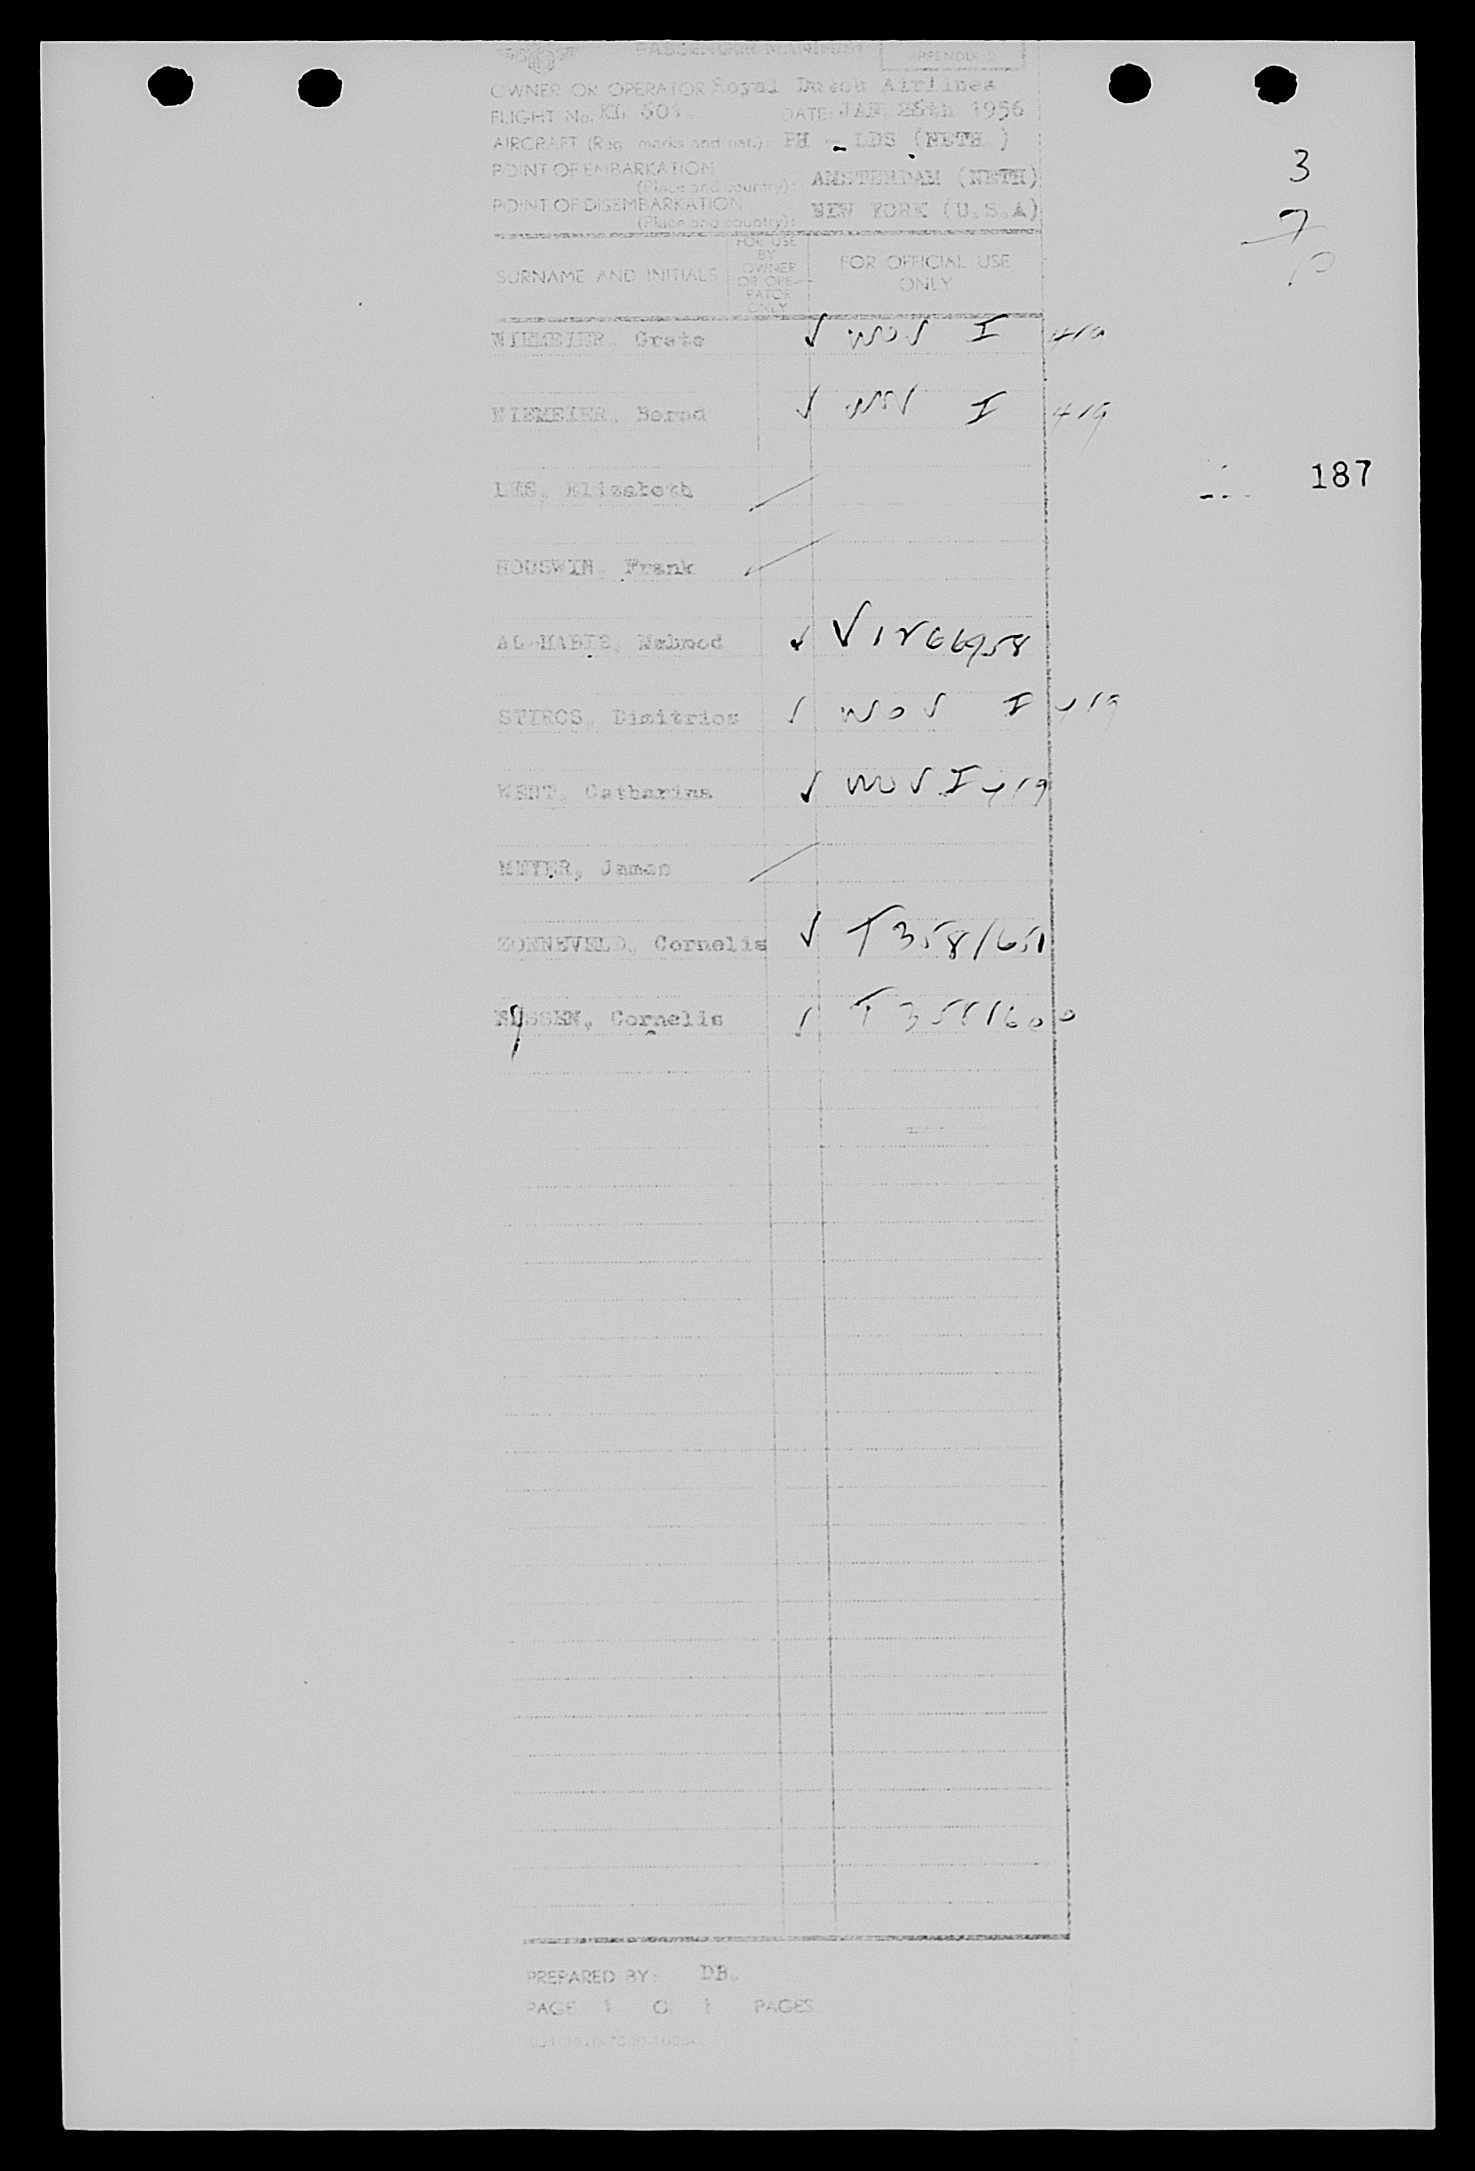 PASSENGER MANIFEST
APPENDIX 9
OWNER OR OPERATOR Royal Dutch Airlines
FLIGHT No. KL 601. DATE: JAN. 28th 1956
AIRCRAFT (Reg. marks and nat.): PH - LDS (NETH.)
POINT OF EMBARKATION
(Place and country): AMSTERDAM (NETH)
POINT OF DISEMBARKATION
(Place and country): NEW YORK (U.S.A)
3
7
10
SURNAME AND INITIALS
FOR USE
BY
OWNER
OR OPE-
RATOR
ONLY
FOR OFFICIAL USE
ONLY
NIEMEIER, Grete √ I 419
NIEMEIER, Bernd √ I 419
187
LES, Elizabeth
Frank
Mahmod √ V1766958
Dimitrios √ I 419
WERT, Catharina √ I 419
MEYER, James
ZONNEVELD, Cornelis √ T 3581651
Cornelis √ T 3581600
PREPARED BY: DB.
PAGE 1 OF 1 PAGES